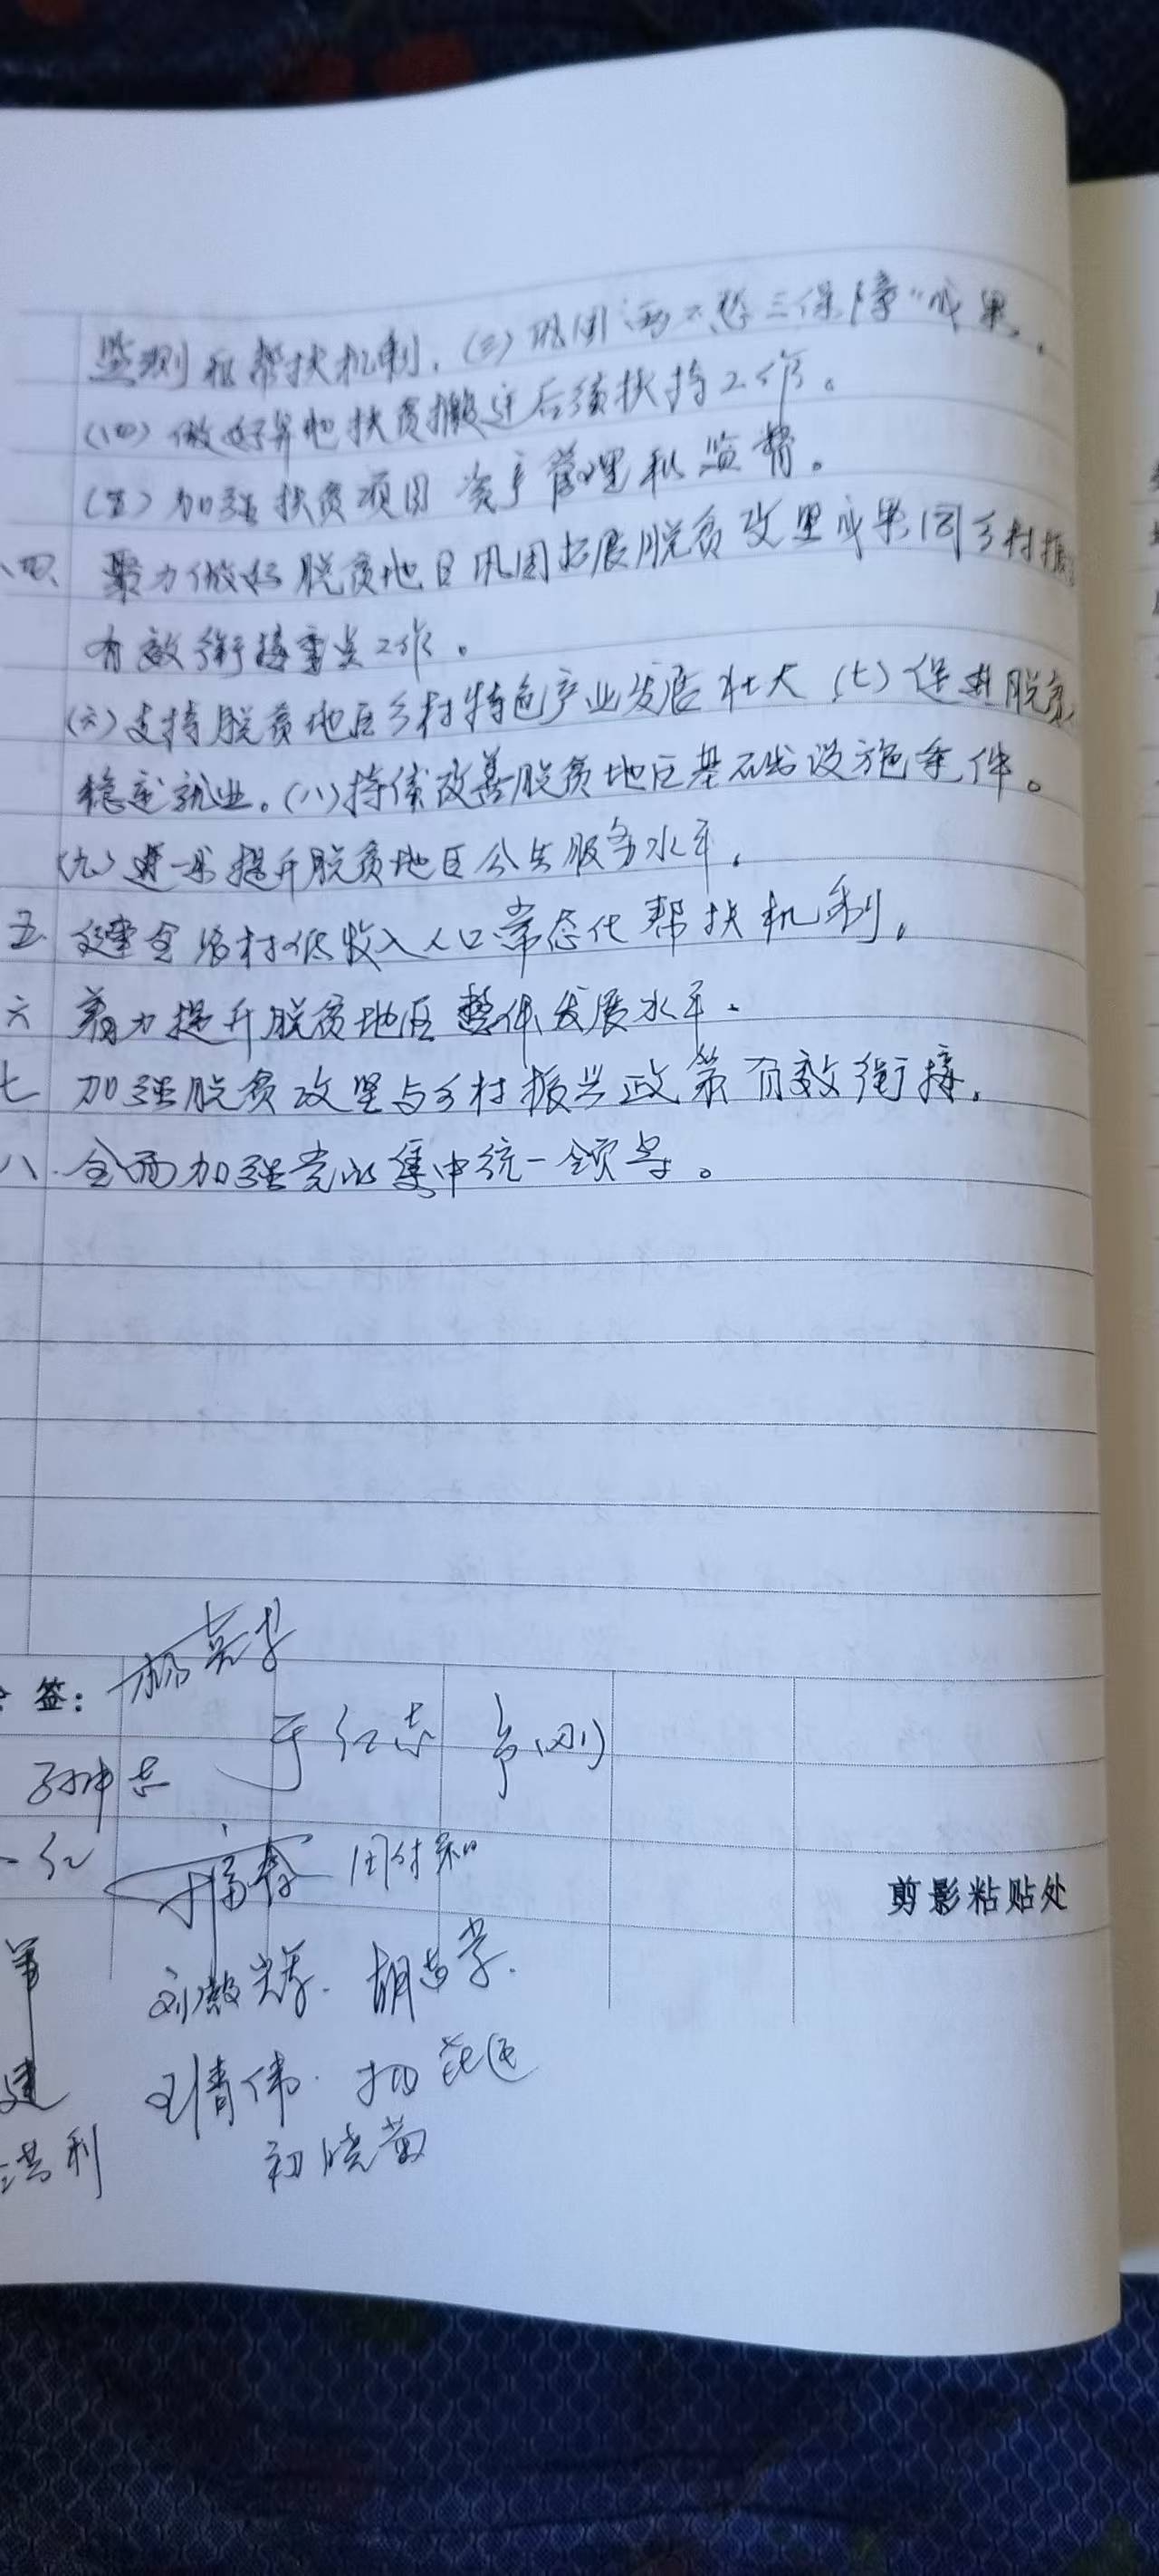 监测和帮扶机制。(三)巩固"两不愁三保障"成果。
(四)做好异地扶贫搬迁后续扶持工作。
(五)加强扶贫项目资产管理和监督。
四、聚力做好脱贫地区巩固拓展脱贫攻坚成果同乡村振
有效衔接重点工作。
(六)支持脱贫地区乡村特色产业发展壮大(七)促进脱贫
稳定就业。(八)持续改善脱贫地区基础设施条件。
(九)进一步提升脱贫地区公共服务水平。
五 健全农村低收入人口常态化帮扶机制。
六 着力提升脱贫地区整体发展水平.
七 加强脱贫攻坚与乡村振兴政策有效衔接。
八.全面加强党的集中统一领导。
签:
于红志
红
剪影粘贴处
军
建 王清伟.
洪利 初晓